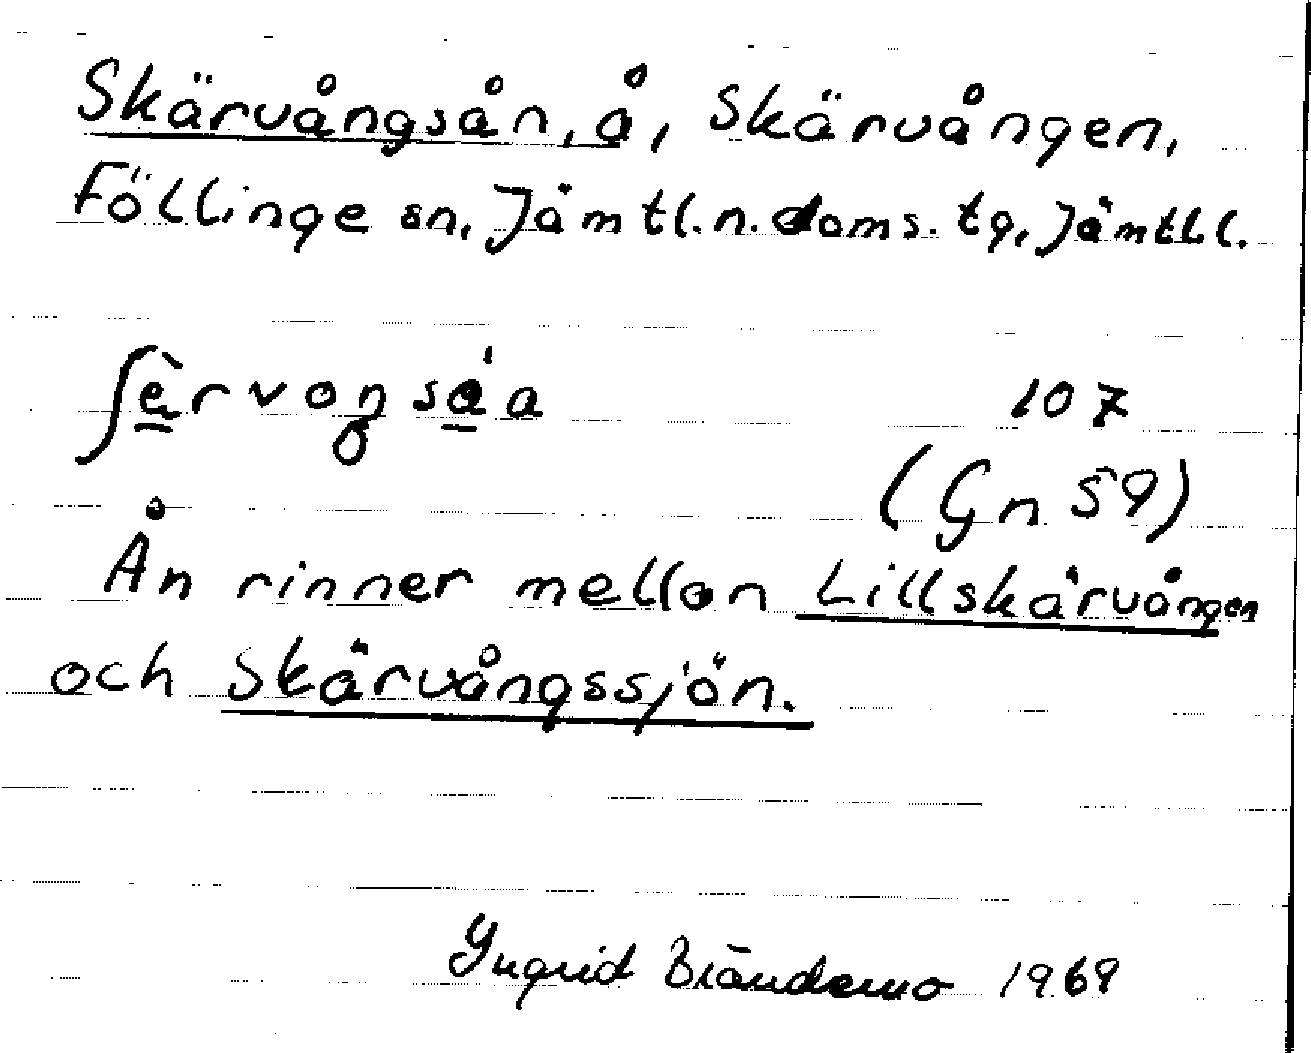 Skärvångsån, å, Skärvången,
Föllinge sn, Jämtl. n. doms. tg, Jämtl. l.
ʃèrvoŋsáa 107
(Gn 59)
Ån rinner mellan Lillskärvången
och Skärvångssjön.
Yngrid Brändemo 1969